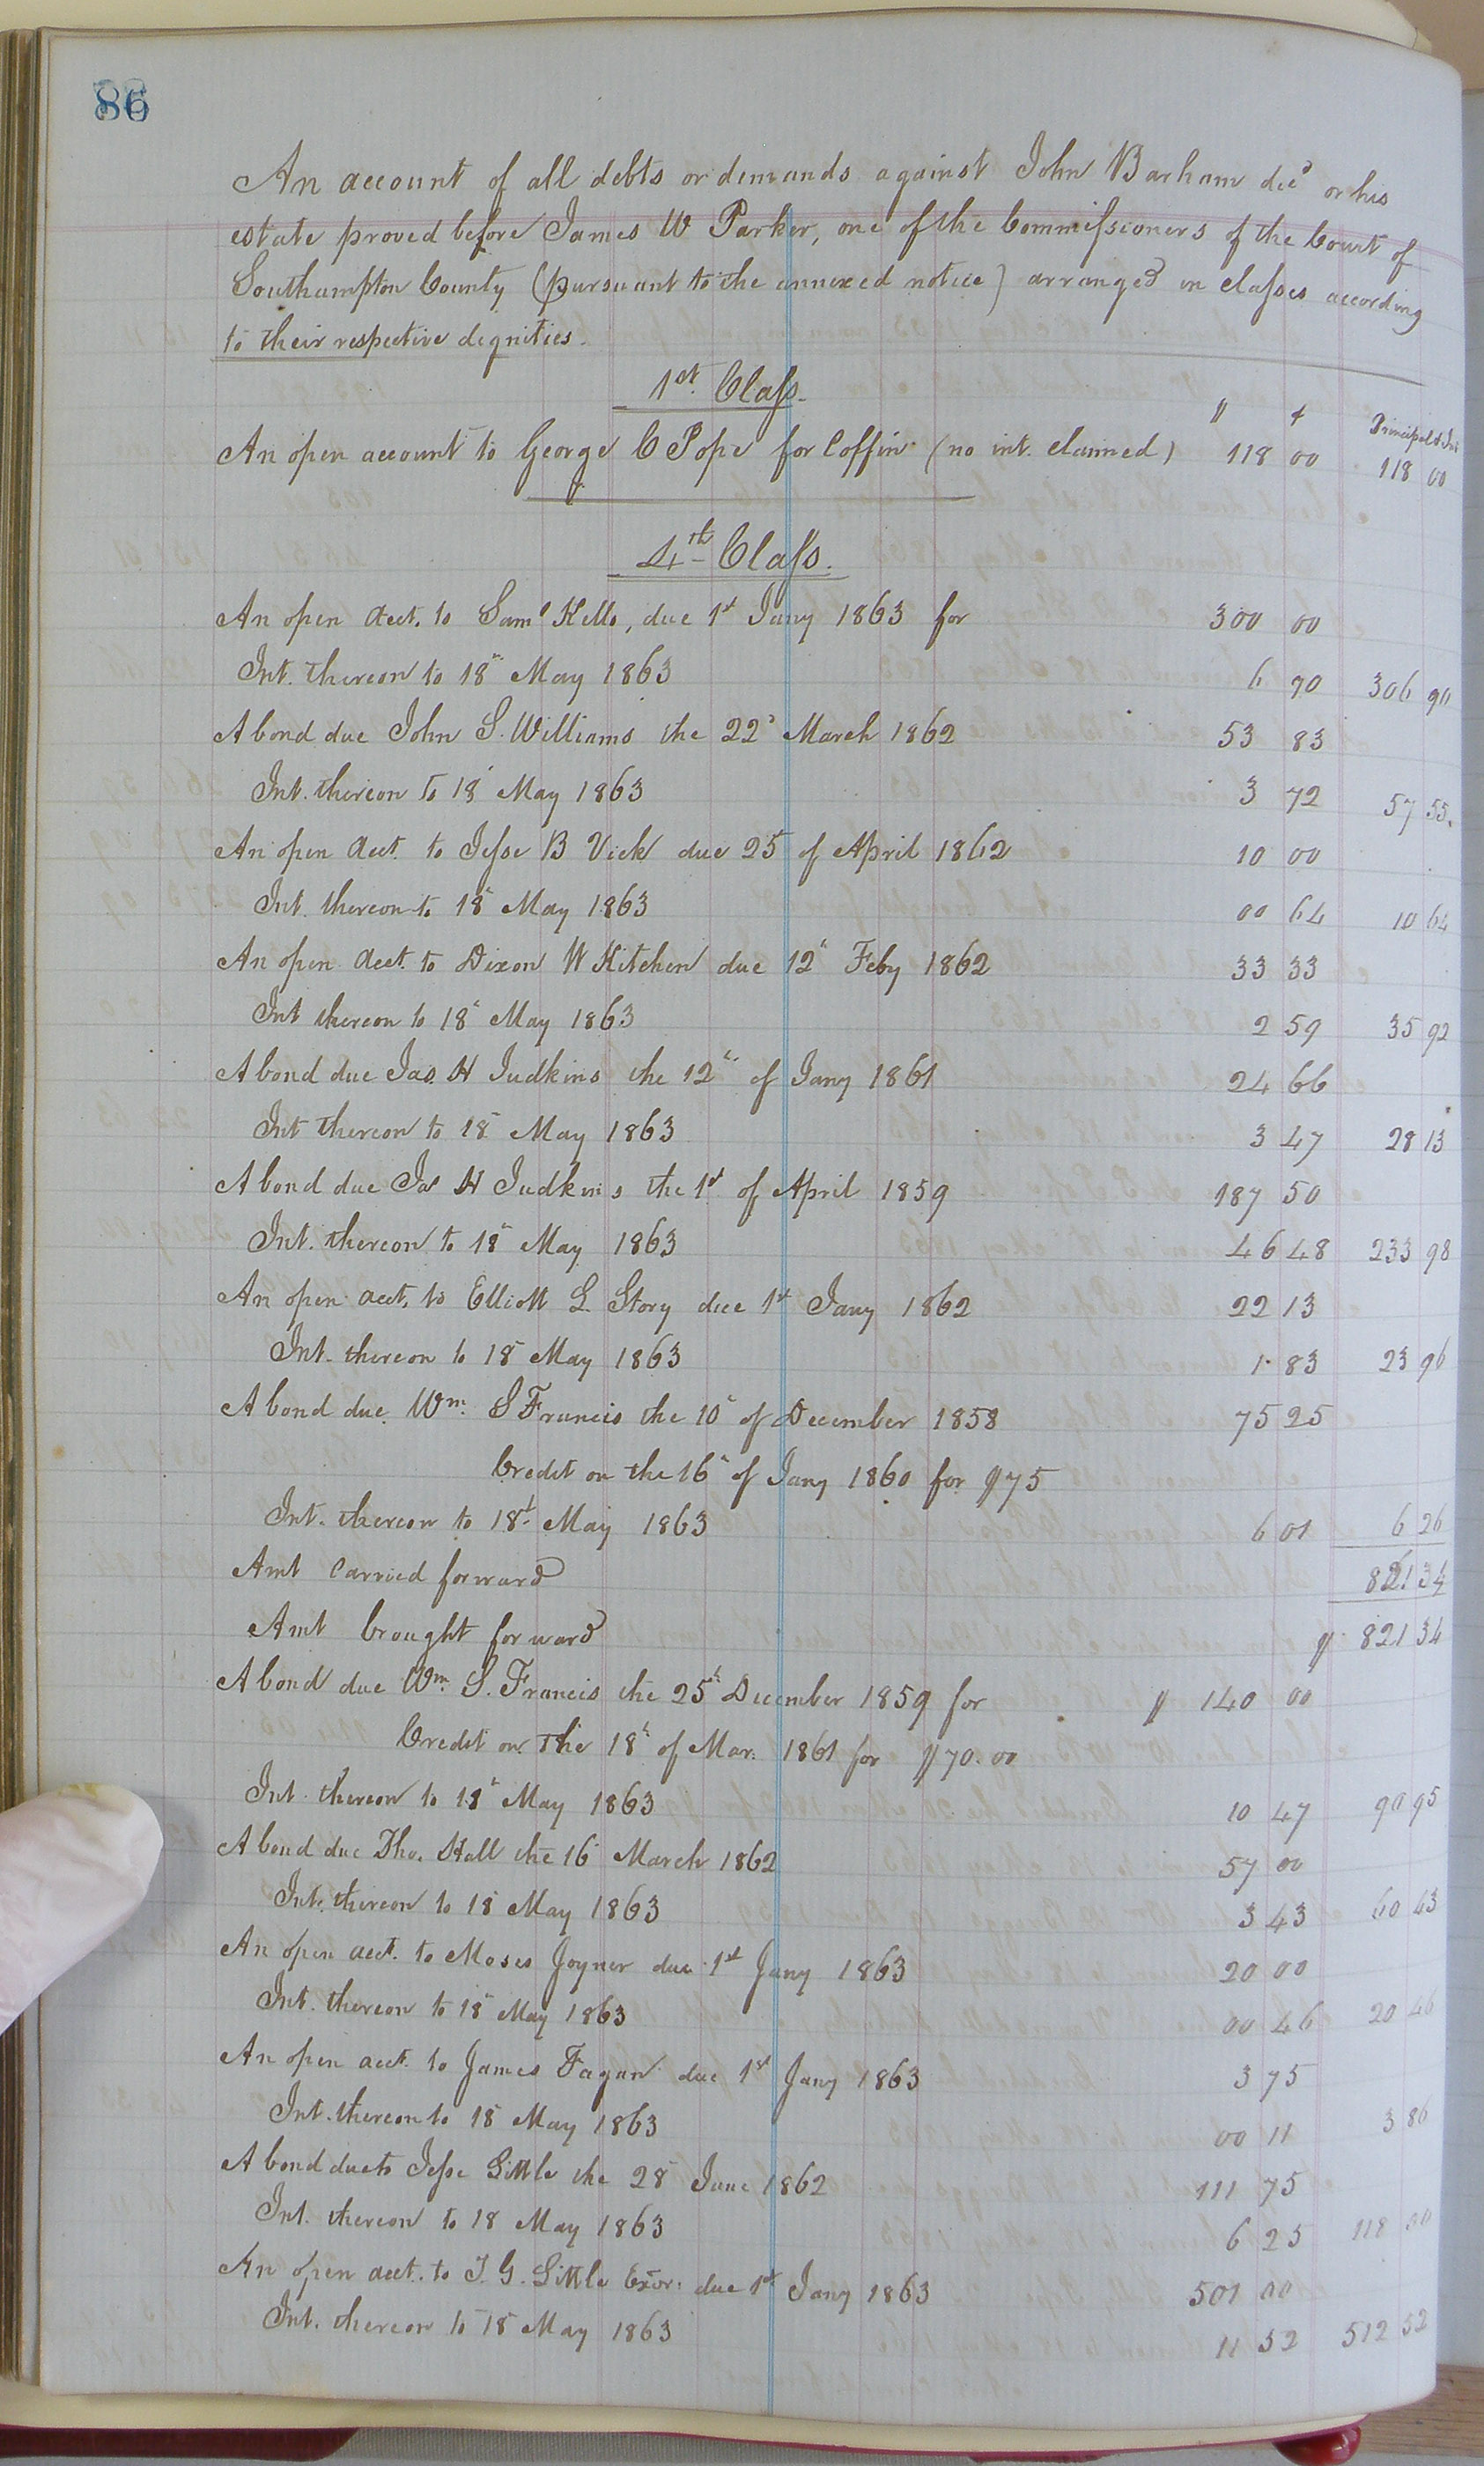 86
An account of all debts or demands against John Barham decd or his
estate proved before James W Parker, one of the Commissioners of the Court of
Southampton County (pursuant to the annexed notice) arranged in classes according
to their respective dignities.
1st. Class.
$ ¢ Principal & Int
An open account to George C Pope for Coffin (no int. claimed) 118 00 118 00
4th Class.
An open acct. to Saml Kello, due 1st Jany 1863 for 300 00
Int. thereon to 18th May 1863 6 90 306 90
A bond due John S. Williams the 22d March 1862 53 83
Int. thereon to 18 May 1863 3 72 57 55.
An open acct. to Jesse B Vick due 25 of April 1862 10 00
Int. thereon to 18th May 1863 00 64 10 64
An open acct. to Dixon W Kitchen due 12th Feby 1862 33 33
Int thereon to 18th May 1863 2 59 35 92
A bond due Jas. H Judkins the 12th of Jany 1861 24 66
Int thereon to 18 May 1863 3 47 28 13
A bond due Jas H Judkins the 1st of April 1859 187 50
Int. thereon to 18th May 1863 46 48 233 98
An open acct. to Elliott L Story due 1st Jany 1862 22 13
Int. thereon to 18th May 1863 1. 83 23 96
A bond due Wm. S Francis the 10th of December 1858 75 25
Credit on the 16th of Jany 1860 for $75
Int. thereon to 18th May 1863 6 01 6 26
Amt carried forward 821 34
Amt brought forward $ 821 34
A bond due Wm. S. Francis the 25th December 1859 for $ 140 00
Credit on the 18th of Mar. 1861 for $70.00
Int. thereon to 18th May 1863 10 47 90 95
A bond due Tho. Hall the 16 March 1862 57 00
Int. thereon to 18 May 1863 3 43 60 43
An open acct. to Moses Joyner due 1st Jany 1863 20 00
Int. thereon to 18th May 1863 00 46 20 46
An open acct. to James Fagan due 1st Jany 1863 3 75
Int. thereon to 18 May 1863 00 11 3 86
A bond due to Jesse Little the 28 June 1862 111 75
Int. thereon to 18 May 1863 6 25 118 00
An open acct. to J. G. Little Exor. due 1st Jany 1863 501 00
Int. thereon to 18 May 1863 11 52 512 52